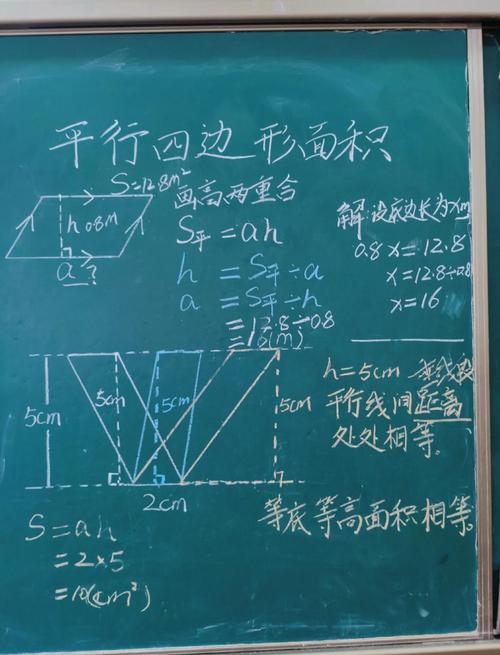 平行四边形面积
S=12.8m²
h 0.8m
a?
画高,两重合
S平=ah
h=S平÷a
a=S平÷h
=12.8÷0.8
=16(m)
解:设底边长为xm
0.8x=12.8
x=12.8÷0.8
x=16
5cm
5cm
5cm
5cm
2cm
h=5cm 垂线段
平行线间距离
处处相等。
等底等高面积相等。
S=ah
=2×5
=10(cm²)